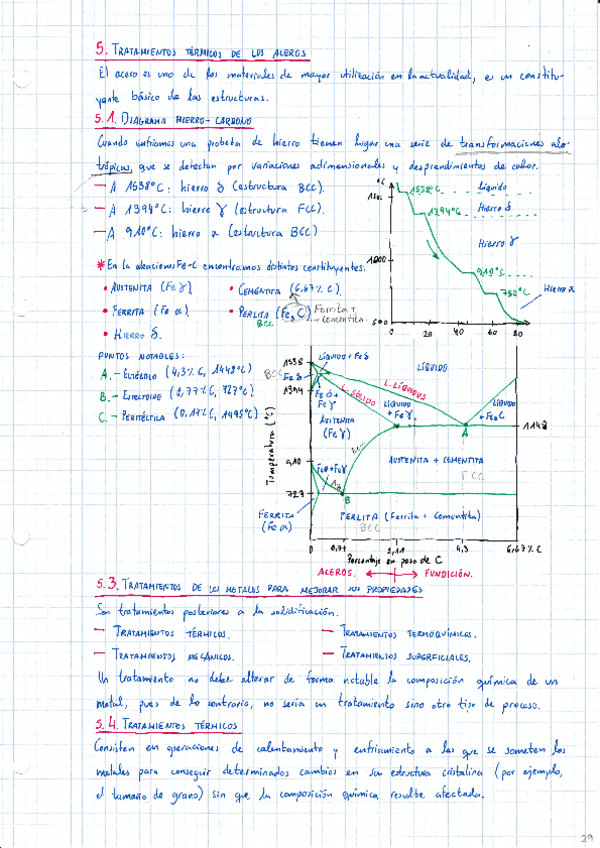 5. TRATAMIENTOS TÉRMICOS DE LOS ACEROS
El acero es uno de los materiales de mayor utilización en la actualidad, es un constitu-
yente básico de las estructuras.
5.1. DIAGRAMA HIERRO-CARBONO
Cuando enfriamos una probeta de hierro tienen lugar una serie de transformaciones alo-
trópicas, que se detectan por variaciones adimensionales y desprendimientos de calor.
— A 1538°C: hierro δ (estructura BCC).
— A 1394°C: hierro γ (estructura FCC).
— A 910°C: hierro α (estructura BCC)
* En la aleaciones Fe-C encontramos distintos constituyentes:
• AUSTENITA (Fe γ)
• CEMENTITA (6,67% C).
• FERRITA (Fe α).
• PERLITA (Fe3 C) Ferrita + cementita
BCC
• HIERRO δ.
PUNTOS NOTABLES:
A. – Eutéctico (4,3% C, 1148°C)
B. – EUTECTOIDE (0,77% C, 727°C)
C. – PERITÉCTICA (0,17% C, 1495°C)
°C
1538°C
Líquido
1394°C
Hierro δ
Hierro γ
1000
910°C
750°C
Hierro α
500
0 20 40 60 80
Temperatura (°C)
1535
BCC
1394
910
727
LÍQUIDO + Fe δ
LÍQUIDO
Fe δ
Fe δ + Fe γ
L. SÓLIDO
L. LÍQUIDUS
AUSTENITA (Fe γ)
LÍQUIDO + Fe γ
LÍQUIDO + Fe3C
A
1148
AUSTENITA + CEMENTITA
FCC
Feα+Feγ
B
FERRITA (Fe α)
PERLITA (Ferrita + Cementita)
BCC
0 0,77 2,11 4,3 6,67% C
Porcentaje en peso de C
ACEROS. FUNDICIÓN.
5.3. TRATAMIENTOS DE LOS METALES PARA MEJORAR SUS PROPIEDADES
Son tratamientos posteriores a la solidificación.
— TRATAMIENTOS TÉRMICOS.
— TRATAMIENTOS TERMOQUÍMICOS.
— TRATAMIENTOS MECÁNICOS.
— TRATAMIENTOS SUPERFICIALES.
Un tratamiento no debe alterar de forma notable la composición química de un
metal, pues de lo contrario, no sería un tratamiento sino otro tipo de proceso.
5.4. TRATAMIENTOS TÉRMICOS
Consisten en operaciones de calentamiento y enfriamiento a las que se someten los
metales para conseguir determinados cambios en su estructura cristalina (por ejemplo,
el tamaño de grano) sin que la composición química resulte afectada.
29